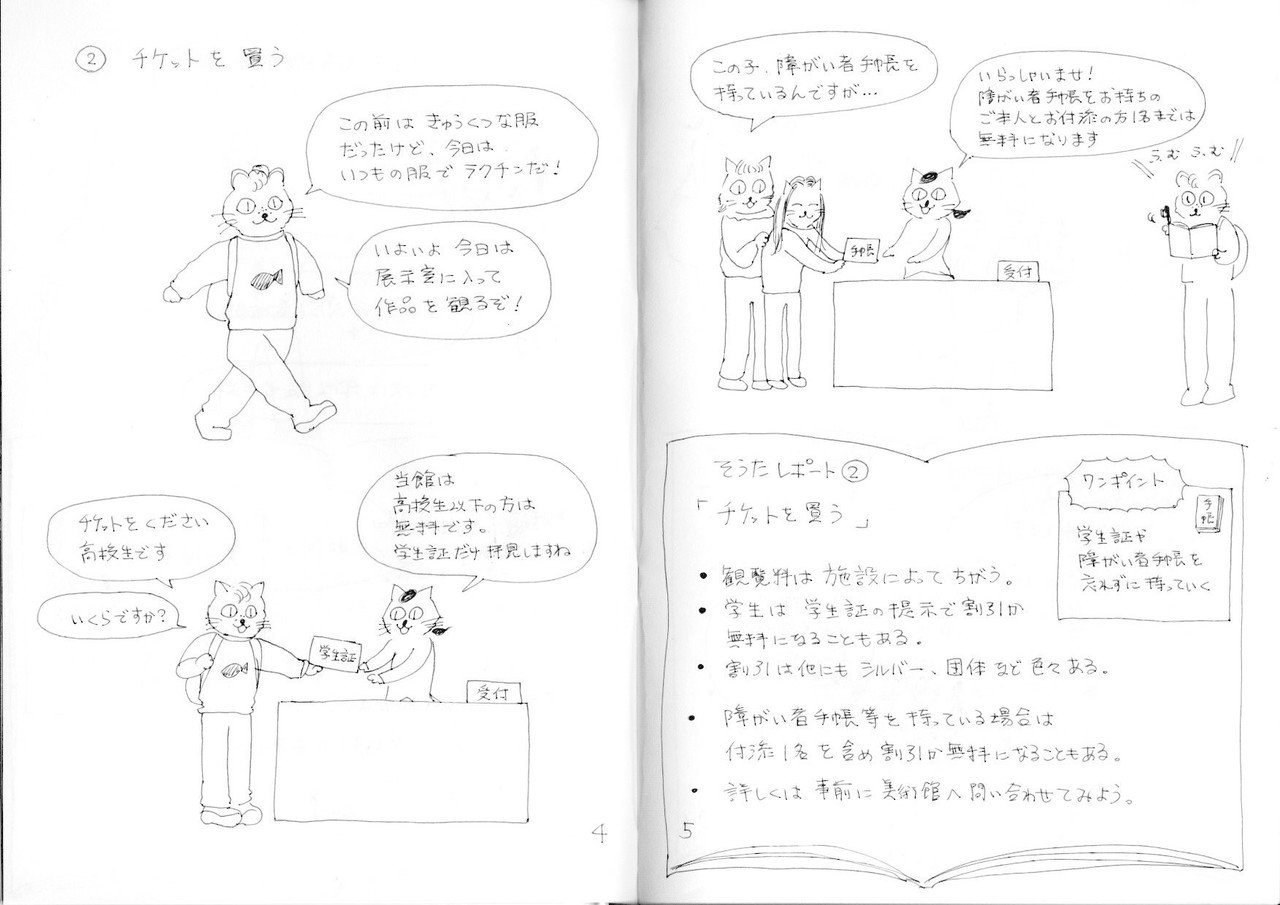 ② チケットを 買う
この前は きゅうくつな服
だったけど、今日は
いつもの服で ラクチンだ！
いよいよ 今日は
展示室に入って
作品を 観るぞ！
チケットをください
高校生です
いくらですか？
当館は
高校生以下の方は
無料です。
学生証だけ拝見しますね
学生証
受付
4
この子、障がい者手帳を
持っているんですが…
いらっしゃいませ！
障がい者手帳をお持ちの
ご本人とお付添の方1名までは
無料になります
ふむ ふむ
手帳
受付
そうたレポート②
「チケットを買う」
ワンポイント
手帳
学生証や
障がい者手帳を
忘れずに持っていく
• 観覧料は 施設によって ちがう。
• 学生は 学生証の提示で割引か
無料になることもある。
• 割引は他にも シルバー、団体など色々ある。
• 障がい者手帳等を持っている場合は
付添1名を含め割引か無料になることもある。
• 詳しくは 事前に美術館へ問い合わせてみよう。
5